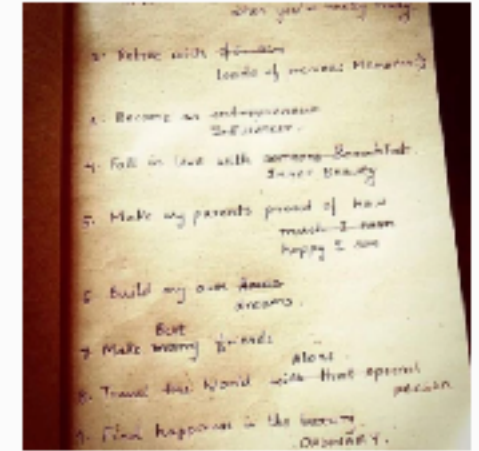 when you're
2. Retire with
loads of Memories
3. Become an entrepreneur
Influencer.
4. Fall in love with someone Beautiful.
Inner Beauty
5. Make my parents proud of how
much I earn
happy I am
6. Build my own house
dreams.
Best
7. Make many friends
Alone
8. Travel the World with that special
person
9. Find happiness in the luxury
ORDINARY.